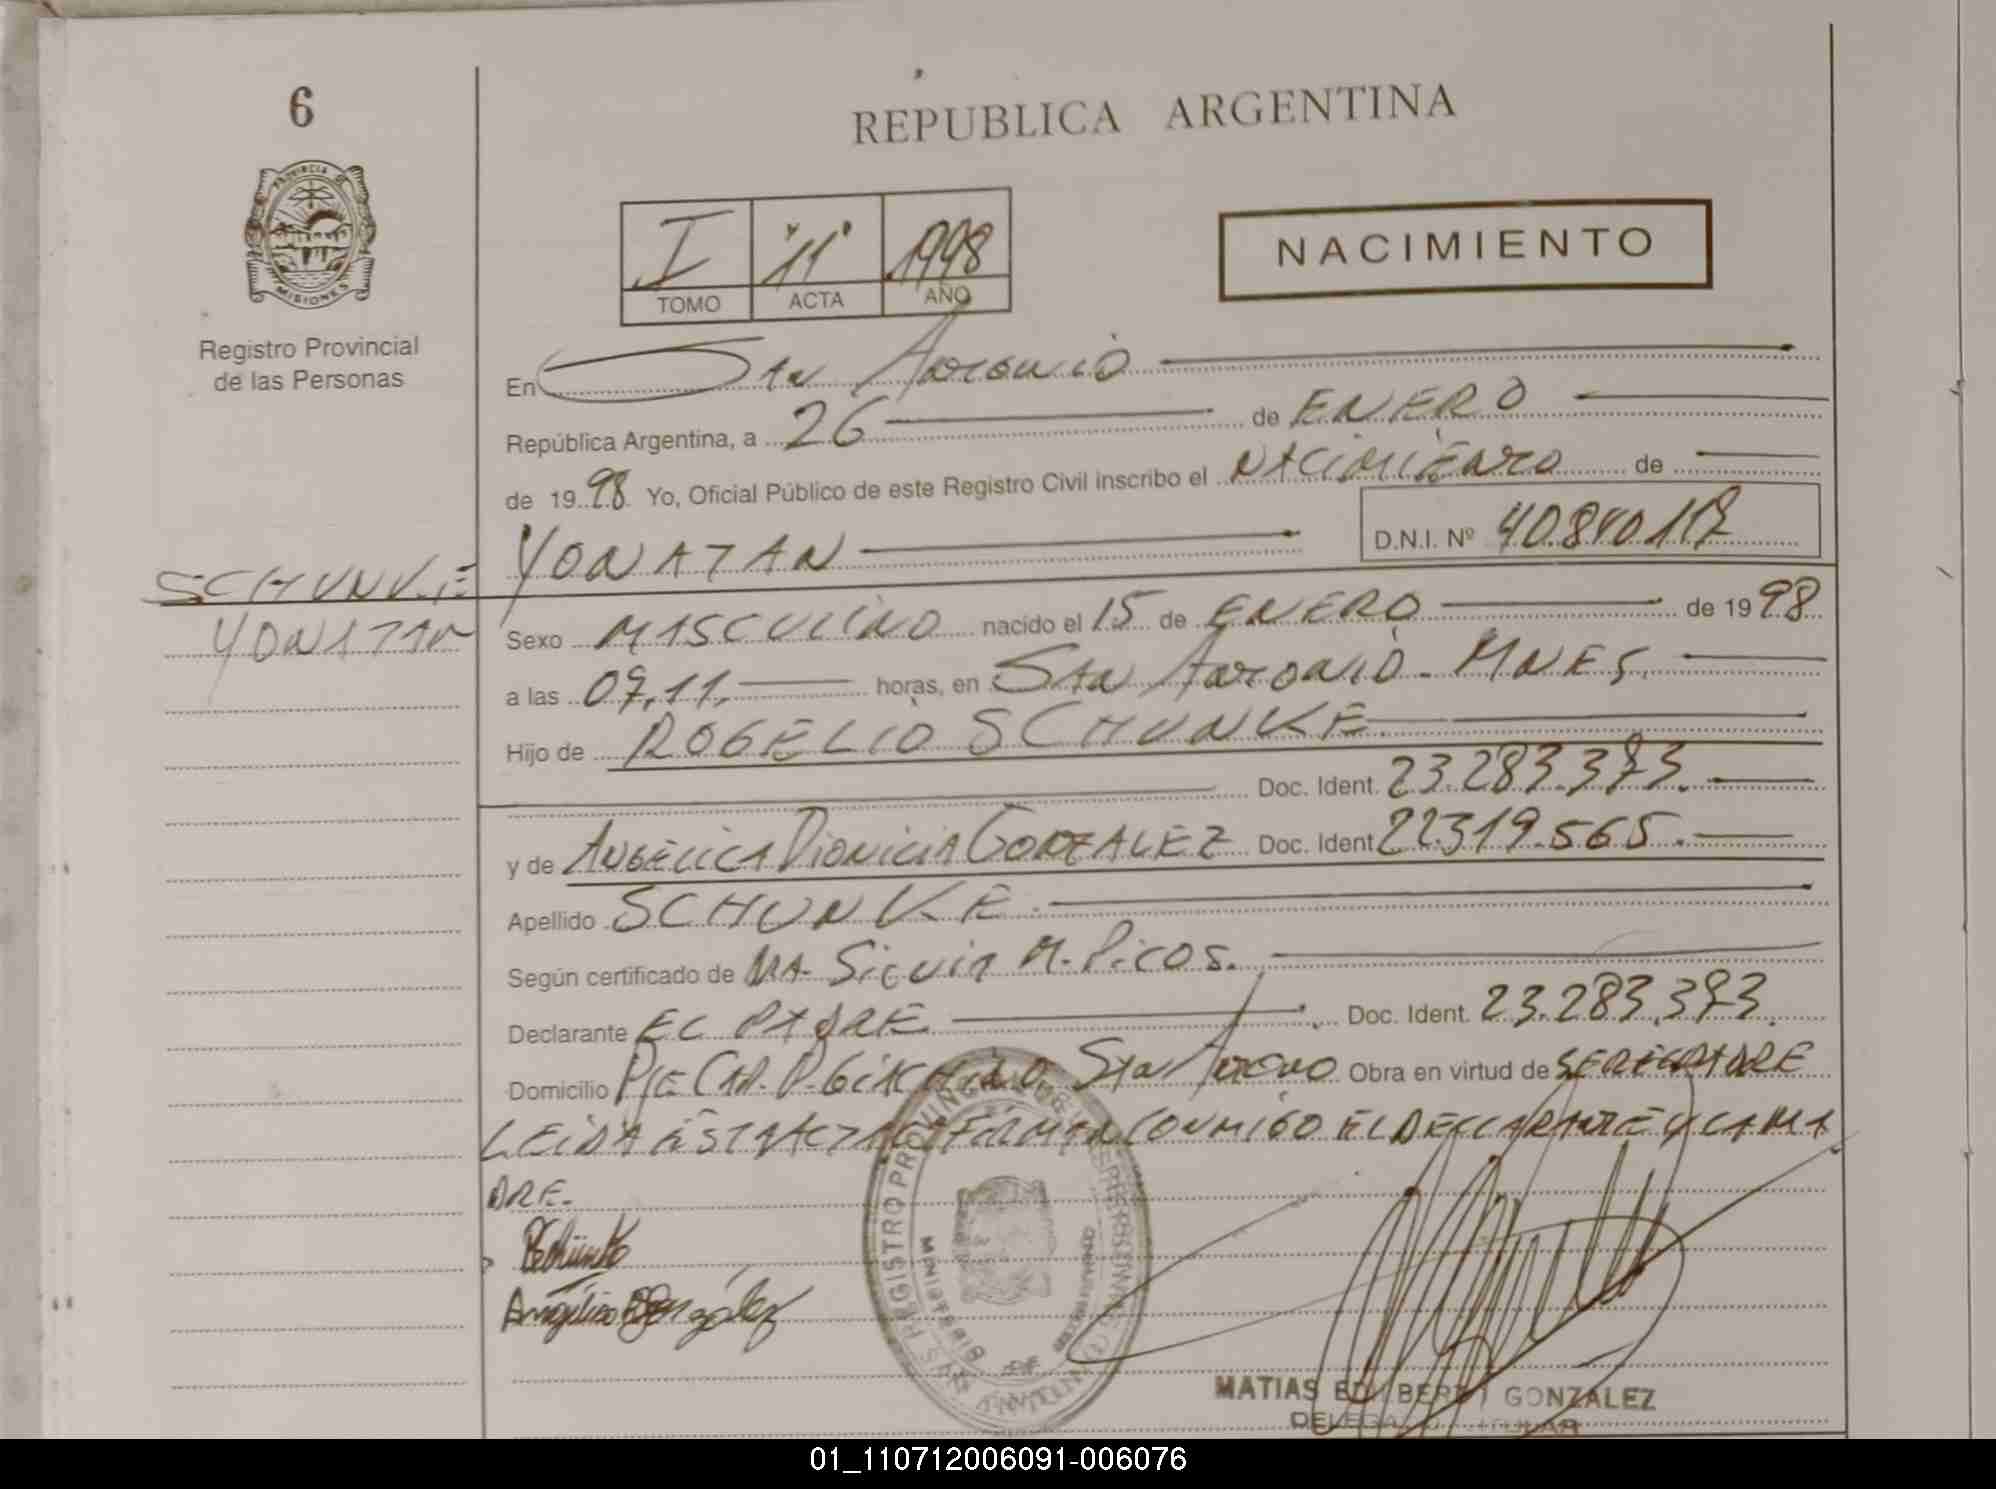 6
PROVINCIA DE
MISIONES
Registro Provincial
de las Personas
REPUBLICA ARGENTINA
I 11 1998
TOMO ACTA AÑO
NACIMIENTO
En San Antonio
República Argentina, a 26 de ENERO
de 1998 Yo, Oficial Público de este Registro Civil inscribo el NACIMIENTO de
YONATAN D.N.I. Nº
SCHUNKE
YONATAN
Sexo MASCULINO nacido el 15 de ENERO de 1998
a las 07,11, horas, en SAN ANTONIO - MNES.
Hijo de ROGELIO SCHUNKE
Doc. Ident. 23.283.373.
y de ANGELICA DIONICIA GONZALEZ Doc. Ident 22.319.565.
Apellido SCHUNKE
Según certificado de M. PICOS.
Declarante EL PADRE Doc. Ident. 23.283.373.
Domicilio San Antonio Obra en virtud de SER EL PADRE
LEIDA ESTA ACTA FIRMAN CONMIGO EL DECLARANTE Y LA MA
DRE.
REGISTRO PROVINCIAL DE LAS PERSONAS
MINISTERIO DE
Angélica González
MATIAS EDILBERTO GONZALEZ
DELEGADO TITULAR
01_110712006091-006076